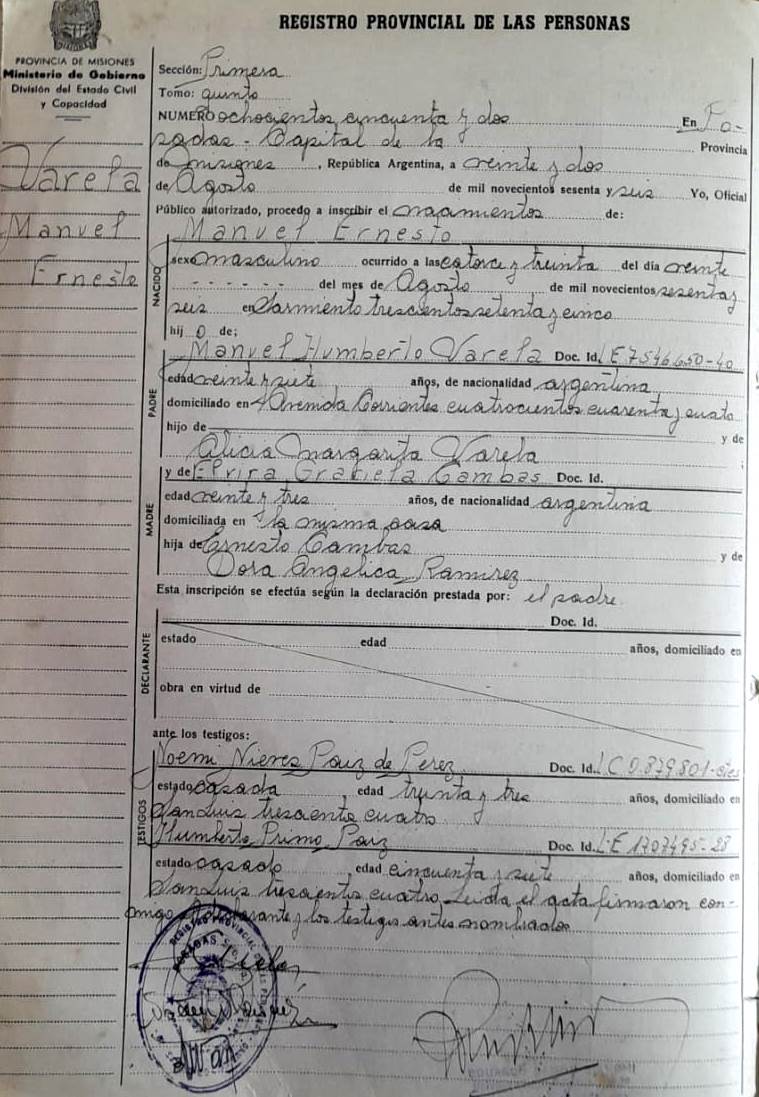 REGISTRO PROVINCIAL DE LAS PERSONAS
PROVINCIA DE MISIONES
Ministerio de Gobierno
División del Estado Civil
y Capacidad
Varela
Manuel
Ernesto
Sección: Primera
Tomo: quinto
NUMERO ochocientos cincuenta y dos En Po-
sadas - Capital de la Provincia
de Misiones, República Argentina, a veinte y dos
de Agosto de mil novecientos sesenta y seis Yo, Oficial
Público autorizado, procedo a inscribir el nacimientos de:
Manuel Ernesto
NACIDO
sexo masculino ocurrido a las catorce y treinta del día veinte
- - - - - - del mes de Agosto de mil novecientos sesenta y
seis en Sarmiento trescientos setenta y cinco
hij o de;
PADRE
Manuel Humberto Varela Doc. Id. L E 7.546.650-40
edad veinte y siete años, de nacionalidad argentina
domiciliado en Avenida Corrientes cuatrocientos cuarenta y cuatro
hijo de y de
Alicia Margarita Varela ;
MADRE
y de Elvira Graciela Cambas Doc. Id.
edad veinte y tres años, de nacionalidad argentina
domiciliada en la misma casa
hija de Ernesto Cambas y de
Dora Angelica Ramirez
Esta inscripción se efectúa según la declaración prestada por: el padre
DECLARANTE
Doc. Id.
estado edad años, domiciliado en
obra en virtud de
ante los testigos:
TESTIGOS
Noemi Nieves Paiz de Perez Doc. Id. L C 0.879.801-ctes
estado casada, edad treinta y tres años, domiciliado en
San Luis trescientos cuatro
Humberto Primo Paiz Doc. Id. L-E 1707495-28
estado casado, edad cincuenta y siete años, domiciliado en
San Luis trescientos cuatro. Leida el acta firmaron con-
migo declarante y los testigos antes nombrados
REGISTRO PROVINCIAL DE LAS PERSONAS
POSADAS